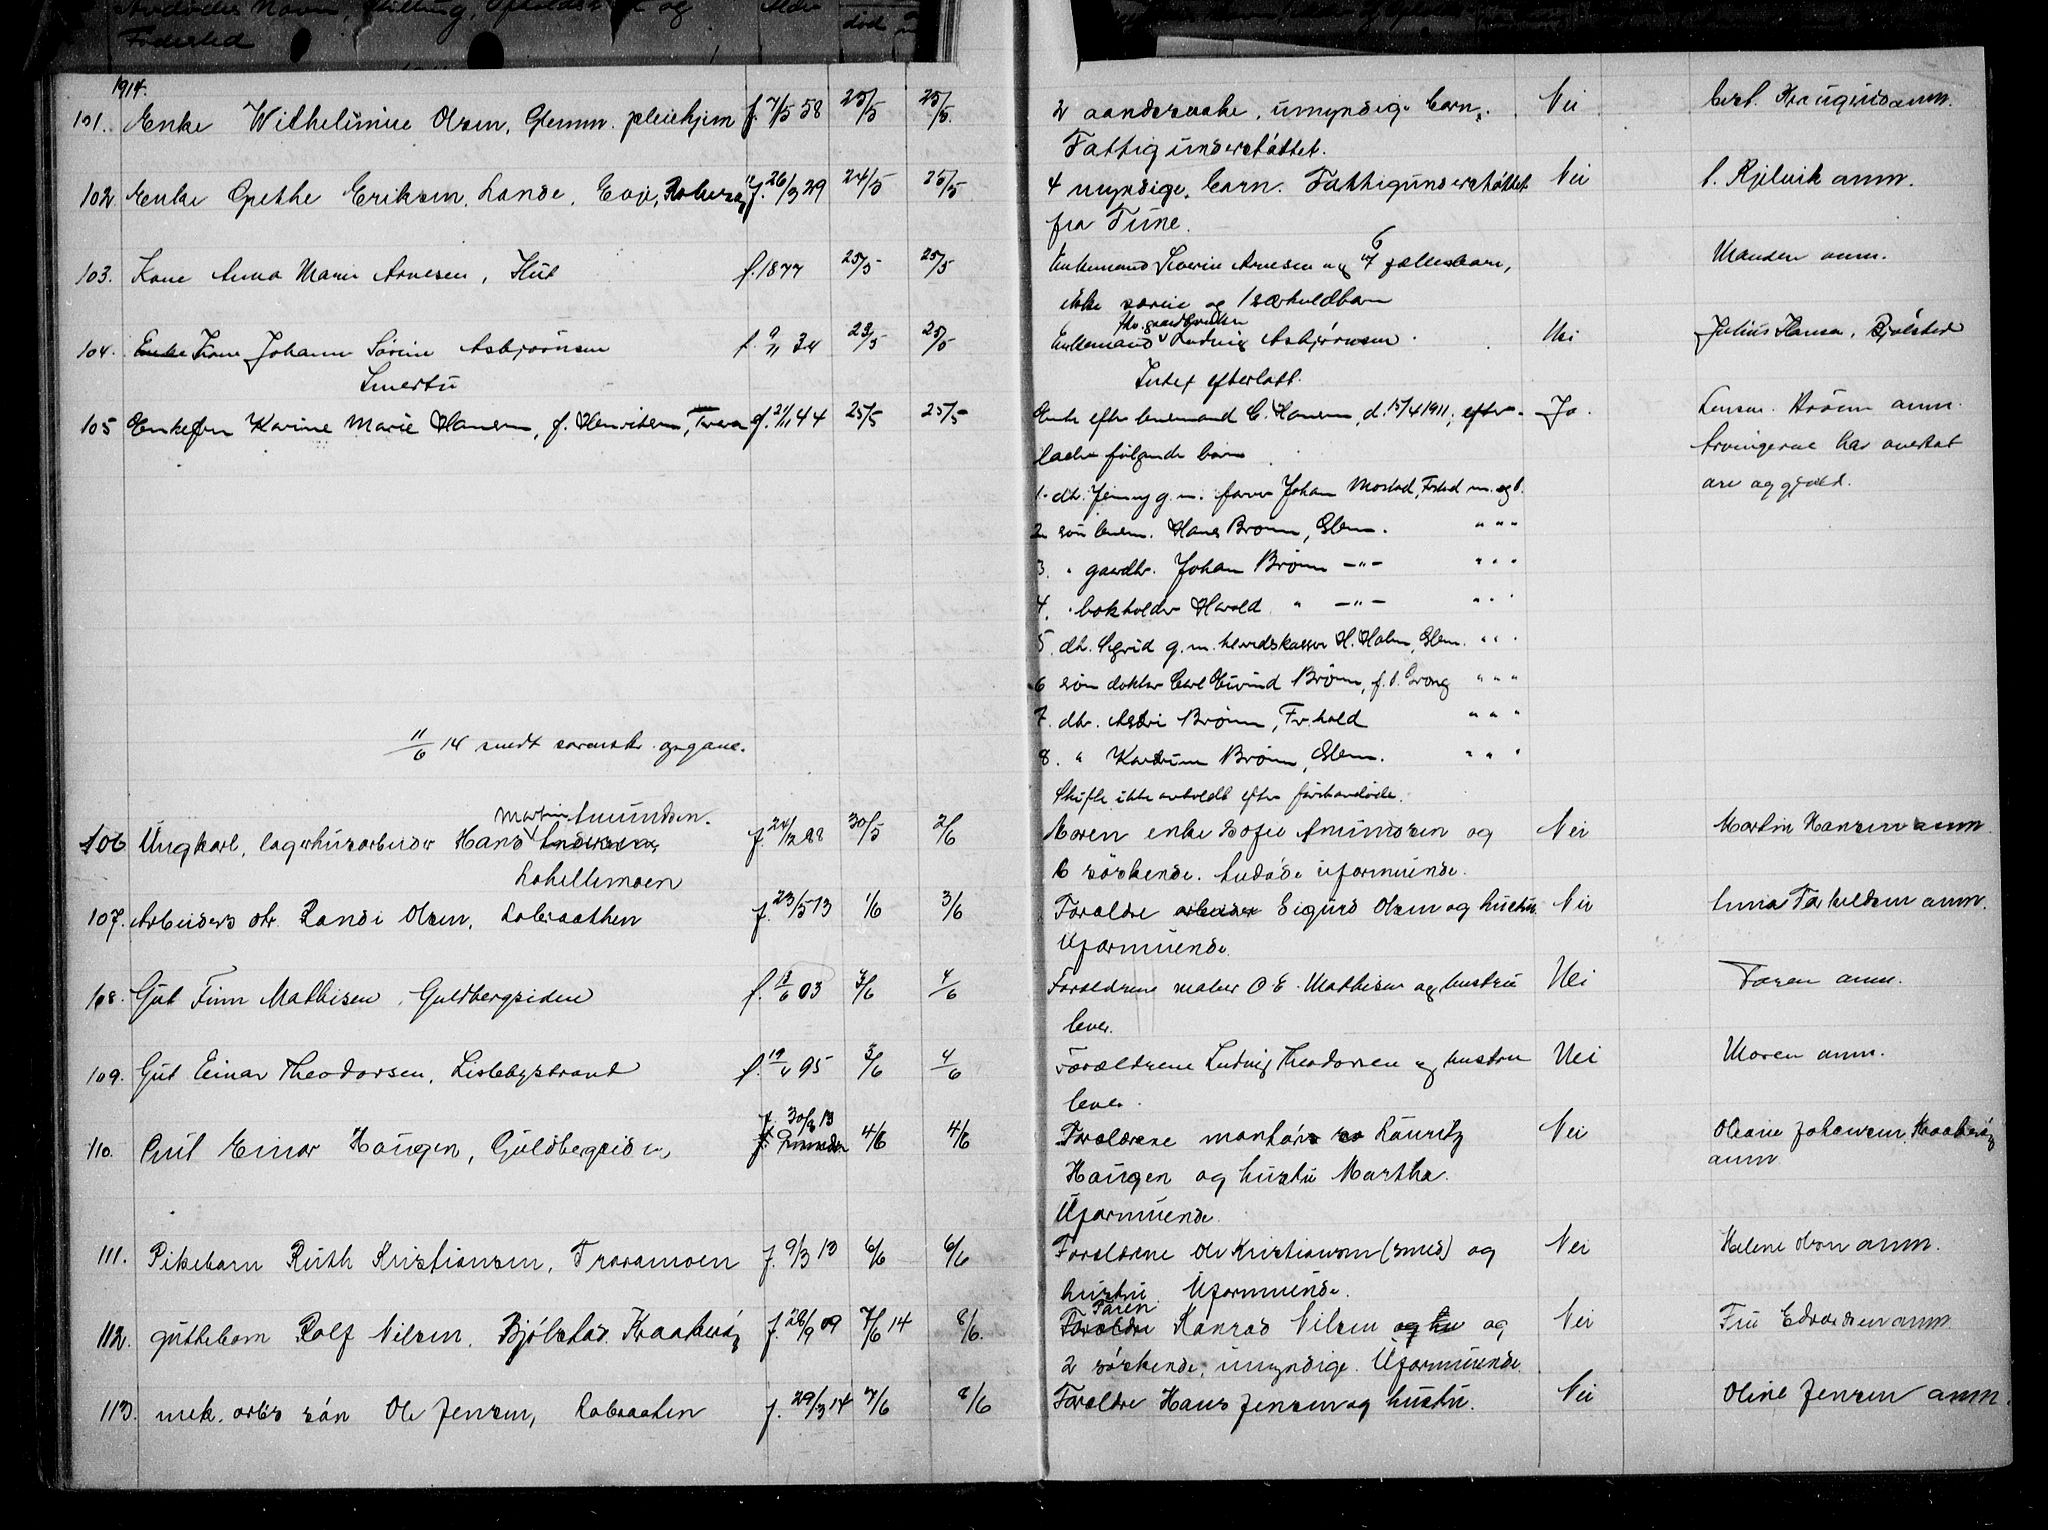 Avdødes Navn, Stilling, Opholdssted og
Fødested
Alder
død
1914.
101. Enke Wilhelmine Olsen, Glemm. pleiehjem f. 7/5 58 25/5 25/5. 2 aandssvake, umyndige barn. Nei anm.
Fattigunderstøttet.
102. Enke Grethe Eriksen, Lande, Evje, f. 26/3 29 24/5 25/5 4 myndige barn. Fattigunderstøttet Nei anm.
fra Tune.
103. Kone Anna Marie Arnesen, f. 1877 25/5 25/5 Enkemand Severin Arnesen og 6 fællesbarn, Manden anm.
ikke særeie og 1 særkuldbarn
104. Enke Kone Johanne Sørine Asbjørnsen f. 9/11 34 23/5 25/5 Enkemand Ludvig Asbjørnsen. Nei Julius Hansen, Bjølstad
Smertu Intet efterlatt.
105 Enkefru Karine Marie Hansen, f. Henriksen, Trara f. 21/11 44 25/5 25/5 Enke efter lensmand C. Hansen, d. 15/4 1911, efter- Ja. Lensm. Brønn anm.
lader følgende barn Arvingerne har overtat
1. dtr. Jenny g. m. farver Johan Mostad, Frstad m. og b. arv og gjæld.
2 søn lensm. Hans Brønn, Glem. " " "
3. " gaardbr. Johan Brønn —"— " " "
4. " bokholder Harald " —"— " " "
5. dtr. Sigrid g. m. herredskasser H. Holm, Glem. " " "
6 søn doktor Carl Eivind Brønn, f. t. Grong " " "
7. dtr. Astri Brønn, Fr.hald " " "
11/6 14 sendt sorenskr. opgave. 8. " Kathrine Brønn, Glem. " " "
Skifte ikke avholdt efter førstavdøde.
Martin Amundsen.
106 Ungkarl, lagerhusarbeider Hans Andersen, f. 24/12 88 30/5 2/6 Moren enke Sofie Amundsen og Nei Martin Hansen anm.
Lahellemoen 6 søskende. Avdøde uformuende.
107. Arbeiders dtr. Randi Olsen, Labraathen f. 23/5 13 1/6 3/6 Forældre arbeider Sigurd Olsen og hustru Nei anm.
Uformuende.
108. Gut Finn Mathisen, Guldbergsiden f. 6 03 3/6 4/6 Forældrene maler O E. Mathisen og hustru Nei Faren anm.
lever.
109. Gut Einar Theodorsen, Lislebystrand f. 95 3/6 4/6 Forældrene Ludvig Theodorsen og hustru Nei Moren anm.
lever.
110. Gut Einar Haugen, Guldbergsiden, f. 30/8 13 4/6 4/6 Forældrene montør Lauritz Nei Oleane Johansen, Kraakerøy
Haugen og hustru Martha. anm.
Uformuende.
111. Pikebarn Ruth Kristiansen, Traramoen f. 9/3 13 6/6 6/6 Forældrene Ole Kristiansen (smed) og Nei Helene Olsen anm.
hustru. Uformuende.
112. guttebarn Rolf Nilsen, Bjølstad, Kraakerøy f. 28/9 09 7/6 14 8/6. Forældre Faren Konrad Nilsen og hu og Nei Fru Edvardsen anm.
2 søskende, umyndige. Uformuende.
113. mek. arbs søn Ole Jensen, Labraaten f. 29/3 14 7/6 8/6 Forældre Hans Jensen og hustru. Nei Oline Jensen anm.